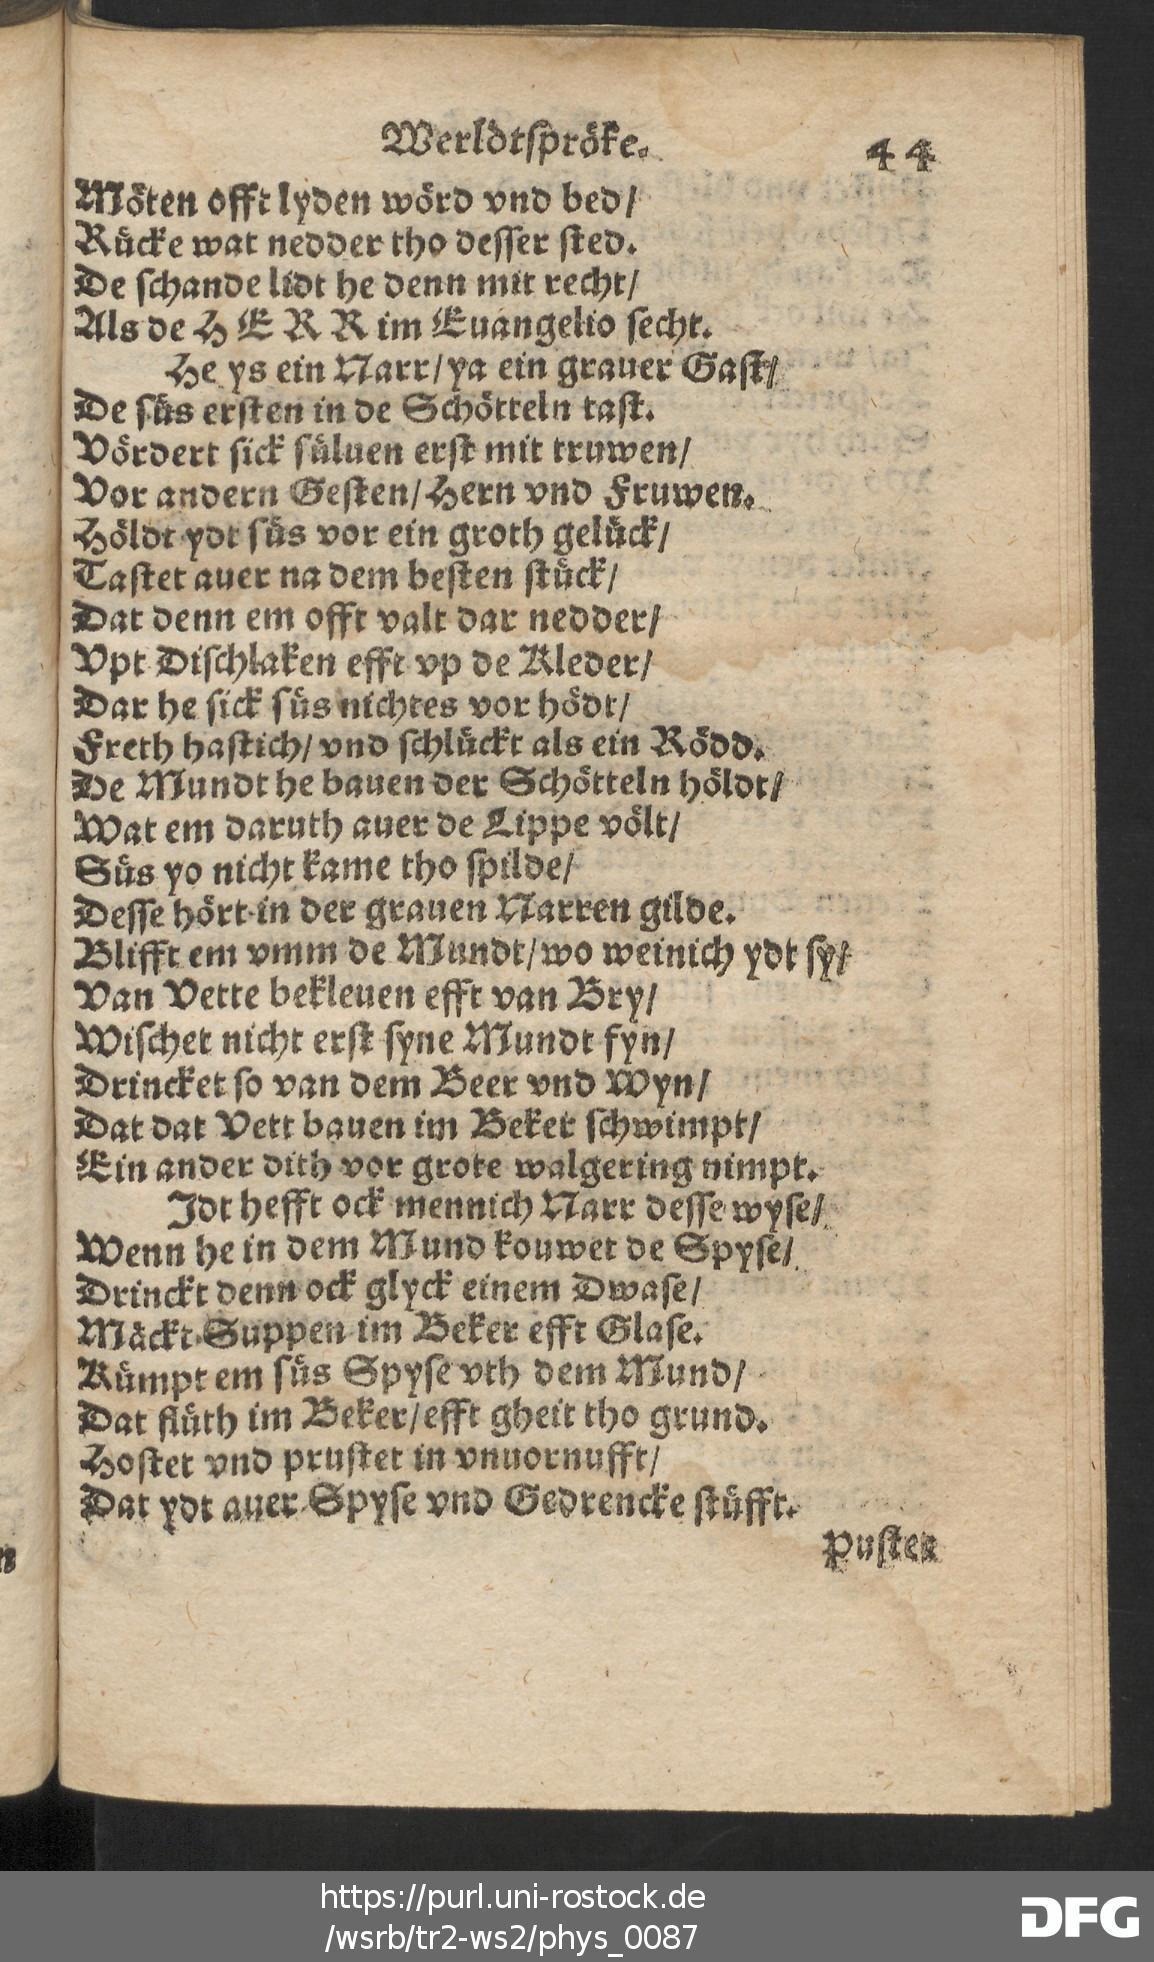 Werldtspröke. 44
Möten offt lyden wörd vnd bed/
Rücke wat nedder tho desser sted.
De schande lidt he denn mit recht/
Als de H E R R im Euangelio secht.
He ys ein Narr/ ya ein grauer Gast/
De süs ersten in de Schötteln tast.
Vördert sick süluen erst mit truwen/
Vor andern Gesten/ Hern vnd Fruwen.
Höldt ydt süs vor ein groth gelück/
Tastet auer na dem besten stück/
Dat denn em offt valt dar nedder/
Vpt Dischlaken efft vp de Kleder/
Dar he sick süs nichtes vor hödt/
Freth hastich/ vnd schlückt als ein Rödd.
De Mundt he bauen der Schötteln höldt/
Wat em daruth auer de Lippe völt/
Süs yo nicht kame tho spilde/
Desse hört in der grauen Narren gilde.
Blifft em vmm de Mundt/ wo weinich ydt sy/
Van Vette bekleuen efft van Bry/
Wischet nicht erst syne Mundt fyn/
Drincket so van dem Beer vnd Wyn/
Dat dat Vett bauen im Beker schwimpt/
Ein ander dith vor grote walgering nimpt.
Idt hefft ock mennich Narr desse wyse/
Wenn he in dem Mund kouwet de Spyse/
Drinckt denn ock glyck einem Dwase/
Mäckt Suppen im Beker efft Glase.
Kümpt em süs Spyse vth dem Mund/
Dat flüth im Beker/ efft gheit tho grund.
Hostet vnd prustet in vnuornufft/
Dat ydt auer Spyse vnd Gedrencke stüfft.
Pustet
https://purl.uni-rostock.de
/wsrb/tr2-ws2/phys_0087
DFG